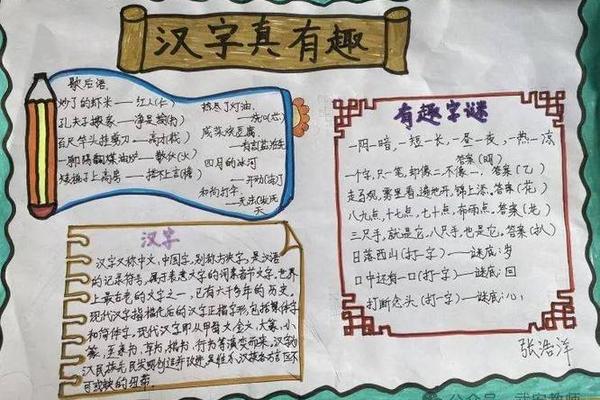 汉字真有趣
歇后语:
炒了的虾米——红人(仁)
孔夫子搬家——净是输(书)
百尺竿头挂剪刀——高才(裁)
一脚踢翻煤油炉——散伙(火)
矮梯子上高房——搭不上言(檐)
热尽了灯油
——烧心(芯)
咸菜炒豆腐
——有言在先
四月的冰河
——开动(冻)
和尚打伞
——无法无天
汉字
汉字又称中文,中国字,别称方块字,是汉语
的记录符号,属于表意文字的词素音节文字。世界
上最古老的文字之一,已有六千多年的历史。
现代汉字指楷化后的汉字正楷字形,包括繁体字
和简体字。现代汉字即从甲骨文、金文、大篆、小
篆、至隶书、草书、楷书、行书等演变而来。汉字为
汉民族先民发明创制并改进,是维系汉族各方言区不
可或缺的纽带。
有趣字谜
一阴一暗,一短一长,一昼一夜,一热一凉
答案(明)
一个字,只一笔,却像二,不像一,答案(乙)
走马观,雾里看,遍地开,锦上添,答案(花)
八九点,十七点,七十点,布雨点,答案(龙)
三尺手,就是它,八尺手,也是它,答案(扒)
日落西山(打一字)——谜底:岁
口中还有一口(打一字)——谜底:回
打断念头(打一字)——谜底:心
张浩洋
公众号
武安教师